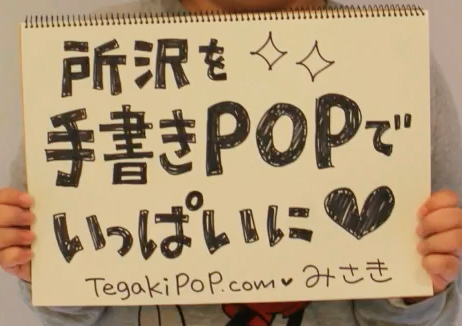 所沢を
手書きPOPで
いっぱいに♥
TegakiPOP.com♥みさき